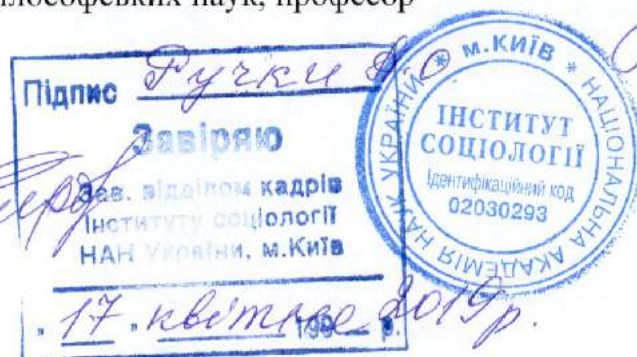 ілософських наук, професор
Підпис Ручки
Завіряю
Зав. відділом кадрів
Інституту соціології
НАН України, м.Київ
" 17 " квітня 2019 р.
199 р.
* м.КИЇВ * НАЦІОНАЛЬНА АКАДЕМІЯ НАУК УКРАЇНИ
ІНСТИТУТ
СОЦІОЛОГІЇ
Ідентифікаційний код
02030293